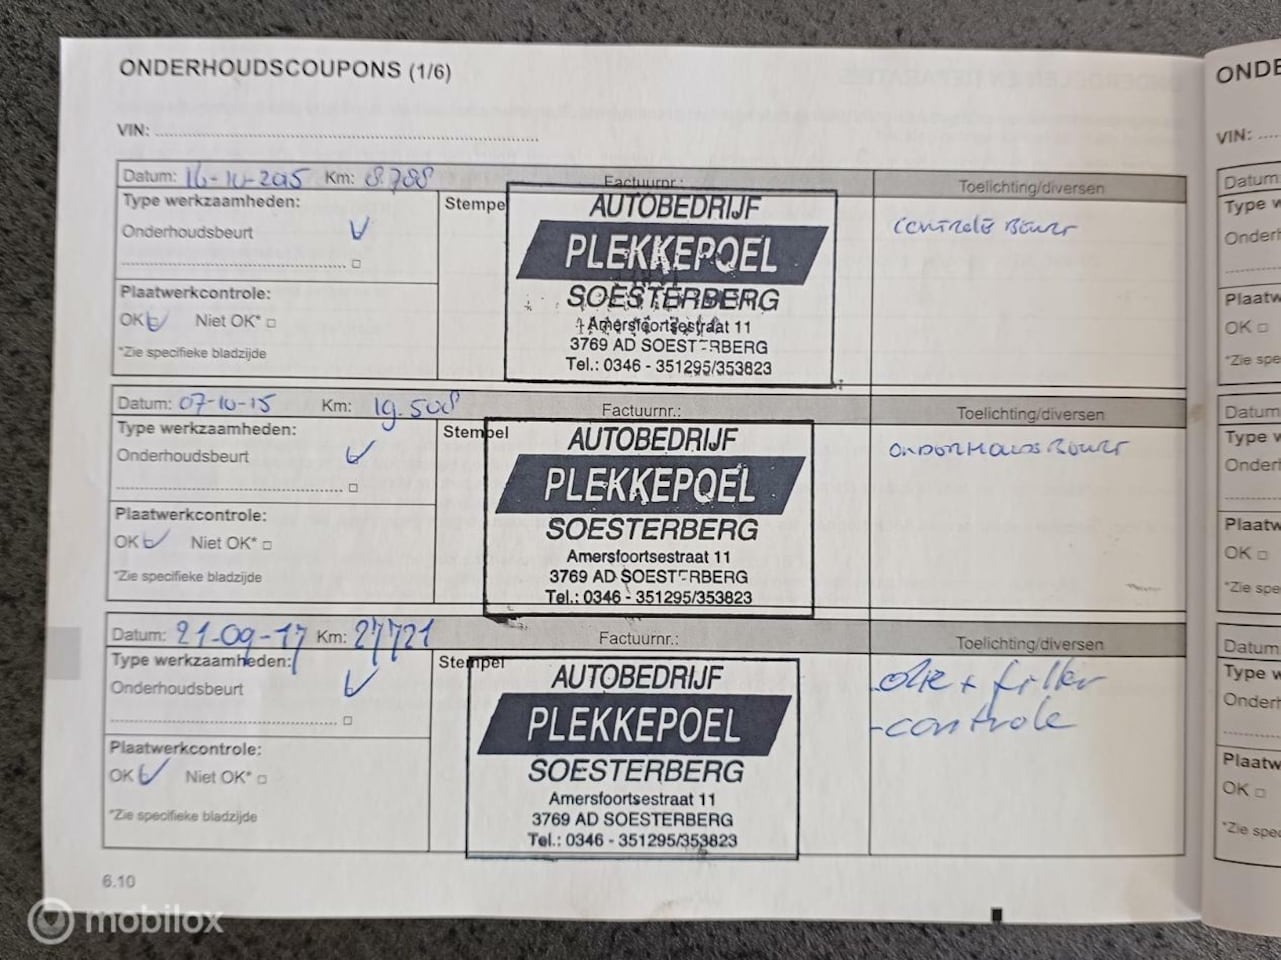 ONDERHOUDSCOUPONS (1/6)
VIN:
Datum: 16-10-2015 Km: 8.788 Factuurnr.: Toelichting/diversen
Type werkzaamheden:
Stempe
Onderhoudsbeurt
Plaatwerkcontrole:
OK Niet OK*
*Zie specifieke bladzijde
AUTOBEDRIJF
PLEKKEPOEL
SOESTERBERG
Amersfoortsestraat 11
3769 AD SOESTERBERG
Tel.: 0346 - 351295/353823
CONTROLE BEURT
Datum: 07-10-15 Km: 19.508 Factuurnr.: Toelichting/diversen
Type werkzaamheden:
Stempel
Onderhoudsbeurt
Plaatwerkcontrole:
OK Niet OK*
*Zie specifieke bladzijde
AUTOBEDRIJF
PLEKKEPOEL
SOESTERBERG
Amersfoortsestraat 11
3769 AD SOESTERBERG
Tel.: 0346 - 351295/353823
ONDERHOUDSBEURT
Datum: 21-09-17 Km: 27721 Factuurnr.: Toelichting/diversen
Type werkzaamheden:
Stempel
Onderhoudsbeurt
Plaatwerkcontrole:
OK Niet OK*
*Zie specifieke bladzijde
AUTOBEDRIJF
PLEKKEPOEL
SOESTERBERG
Amersfoortsestraat 11
3769 AD SOESTERBERG
Tel.: 0346 - 351295/353823
olie + filter
-controle
6.10
ONDE
VIN:
Datum
Type w
Onderh
Plaatw
OK
*Zie spe
Datum
Type w
Onderh
Plaatw
OK
*Zie spe
Datum
Type w
Onderh
Plaatw
OK
*Zie spe
mobilox